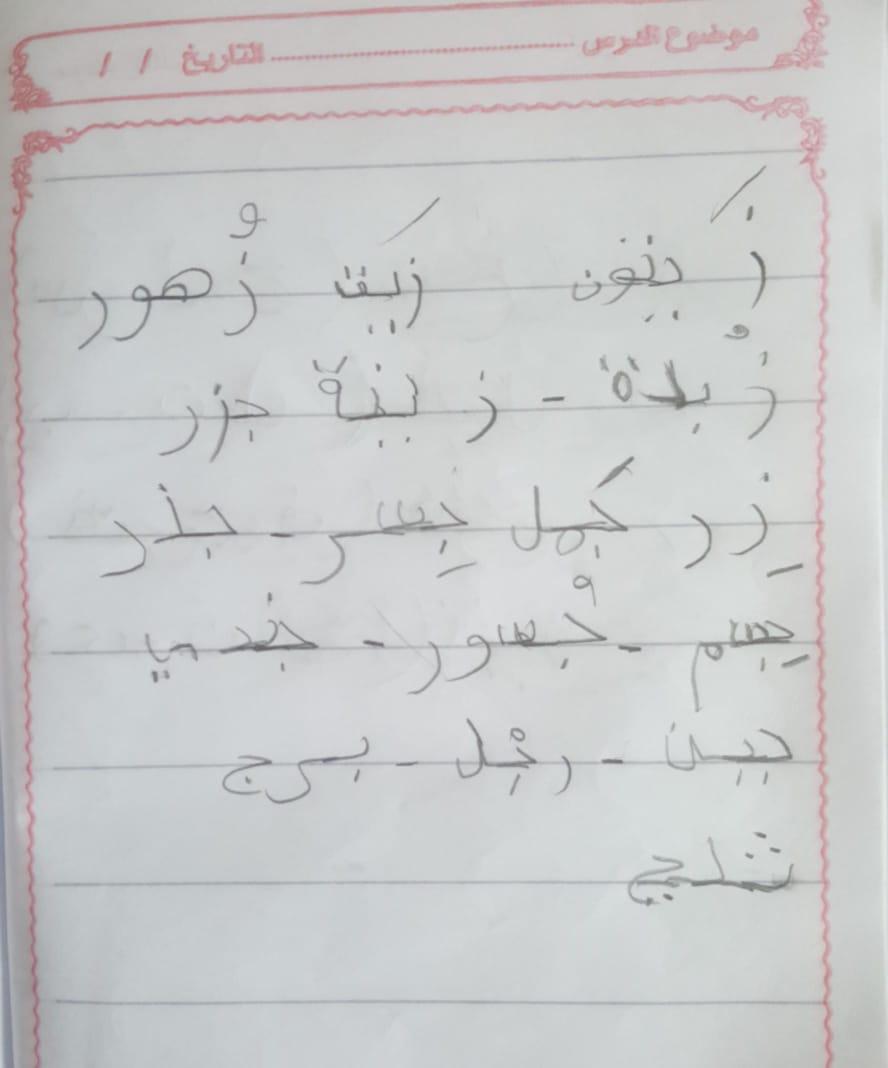 موضوع الدرس ........................ التاريخ / /
زَيتون زَيت زُهور
زُبدة - زينة جزر
زِر جَمل جِسر - جذر
جِسم - جُسور - جندي
جبن - رجُل - برج
ثلج